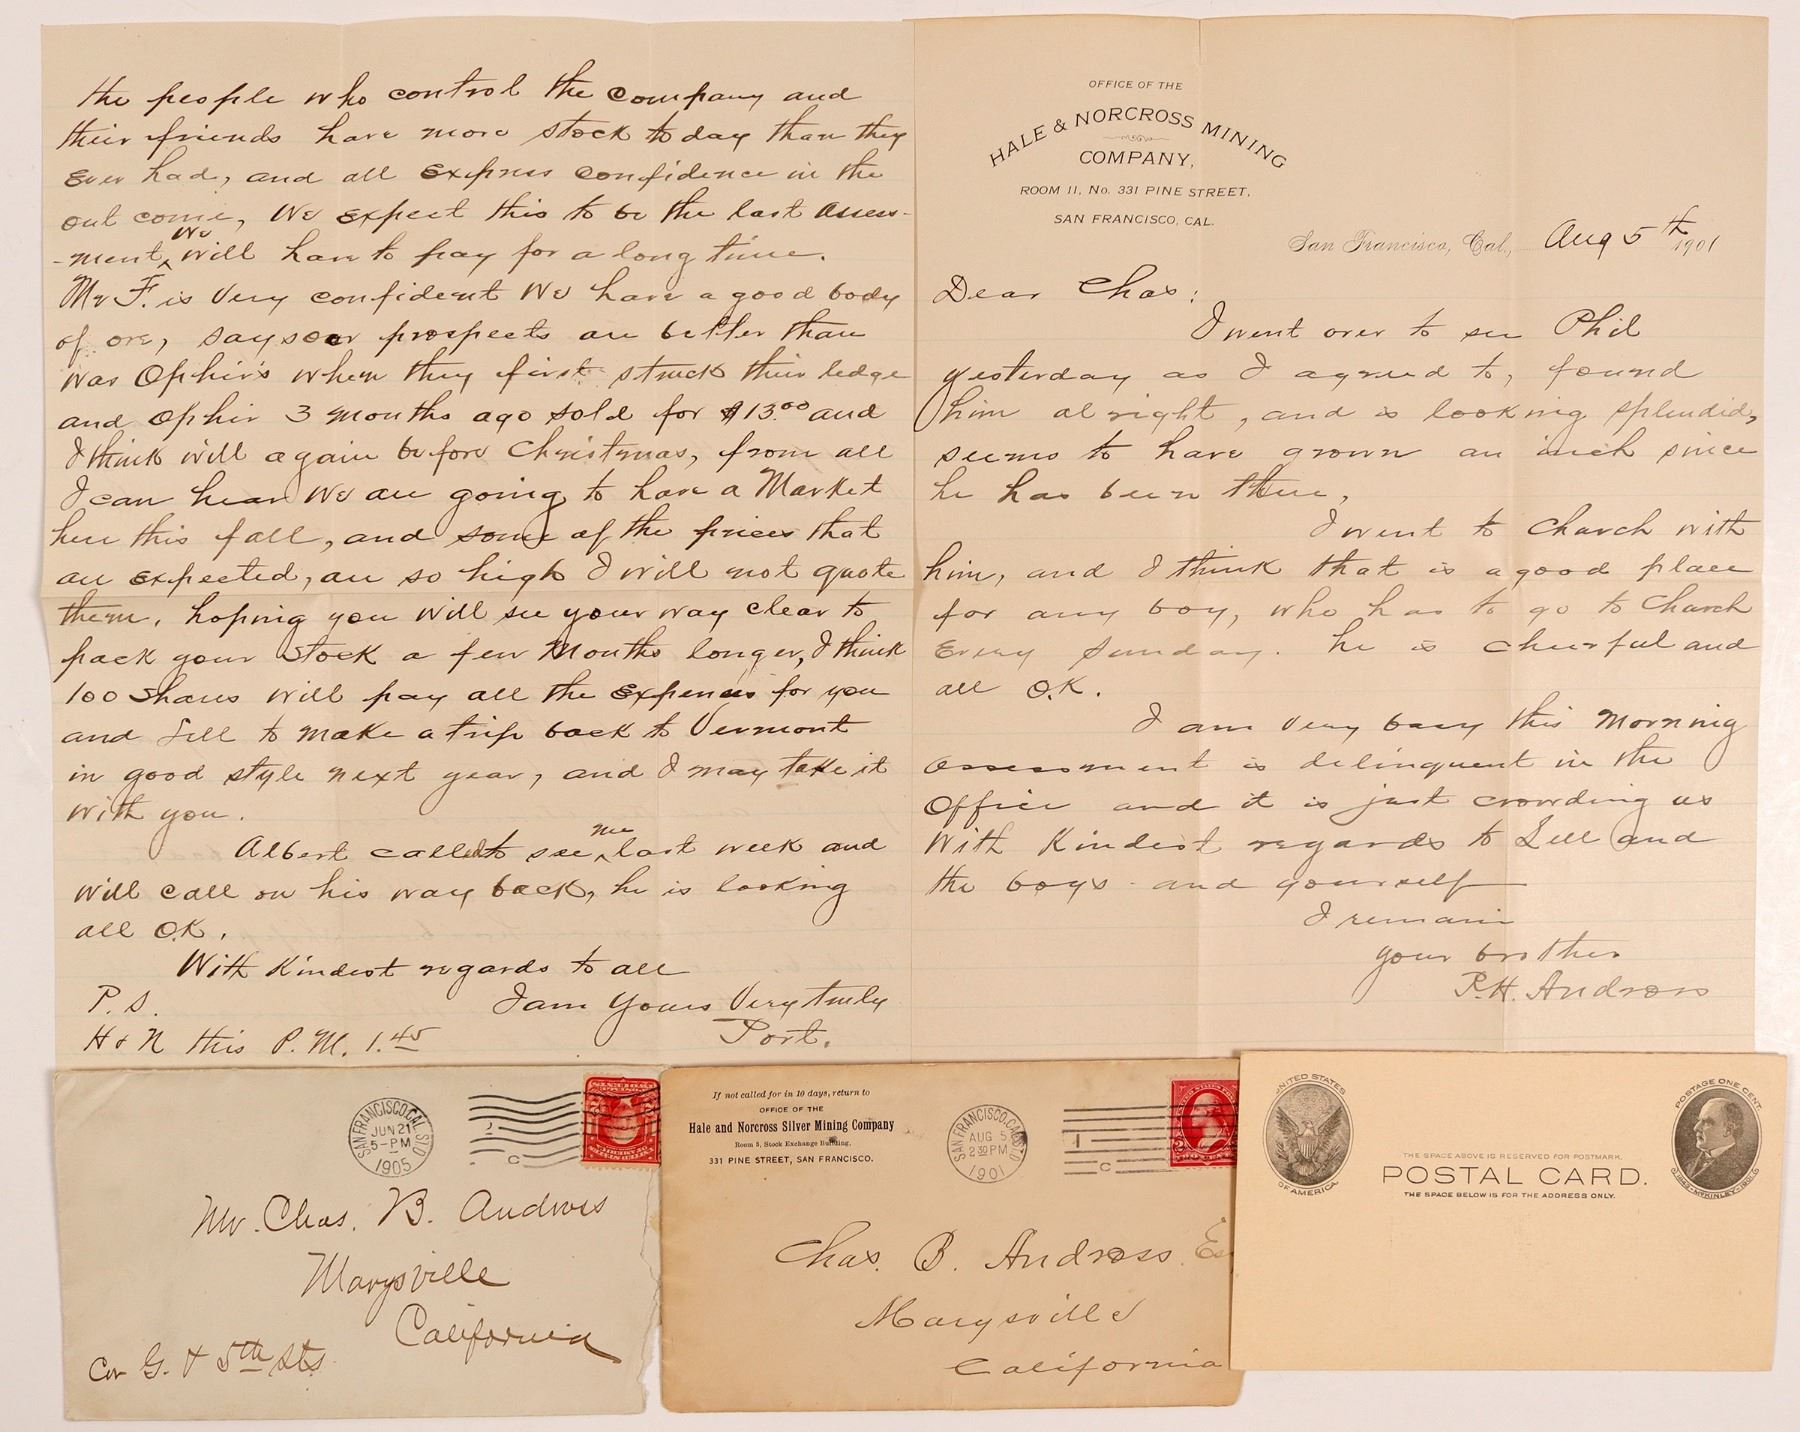 the people who control the company and
their friends have more stock to day than they
Ever had, and all Express confidence in the
out come, We Expect this to be the last Assess-
-ment, We will have to pay for a long time.
Mr F. is Very confident We have a good body
of ore, says our prospects are better than
was Ophir's when they first struck their ledge
and Ophir 3 months ago sold for $13.00 and
I think will again before Christmas, from all
I can hear We are going to have a Market
here this fall, and some of the prices that
are Expected, are so high I will not quote
them, hoping you will see your way clear to
pack your stock a few Months longer, I think
100 shares will pay all the Expenses for you
and Lill to make a trip back to Vermont
in good style next year, and I may take it
with you.
Albert called to see me last week and
will call on his way back, he is looking
all O.K.
With Kindest regards to all
I am Yours Very truly
Port.
P.S.
H & N this P.M. 1.45
OFFICE OF THE
HALE & NORCROSS MINING
COMPANY,
ROOM 11, No. 331 PINE STREET,
SAN FRANCISCO, CAL.
San Francisco, Cal., Aug 5th 1901
Dear Chas:
I went over to see Phil
yesterday as I agreed to, found
him al right, and is looking splendid,
seems to have grown an inch since
he has been there,
I went to Church with
him, and I think that is a good place
for any boy, who has to go to Church
Every Sunday. he is cheerful and
all O.K.
I am Very busy this Morning
assessment is delinquent in the
Office and it is just crowding us
With Kindest regards to Lill and
the boys and yourself
I remain
your brother
P.H. Andross
SAN FRANCISCO, CAL. STA. D
JUN 21
5-PM
1905
Mr. Chas. B. Andross
Marysville
California
Cor G. & 5th Sts.
If not called for in 10 days, return to
OFFICE OF THE
Hale and Norcross Silver Mining Company
Room 3, Stock Exchange Building,
331 PINE STREET, SAN FRANCISCO.
SAN FRANCISCO, CAL. STA. D
AUG 5
2 30 PM
1901
Chas. B. Andross. Es
Marysville
California
UNITED STATES
OF AMERICA
THE SPACE ABOVE IS RESERVED FOR POSTMARK.
POSTAL CARD.
THE SPACE BELOW IS FOR THE ADDRESS ONLY.
POSTAGE ONE CENT.
1843-McKINLEY-1901